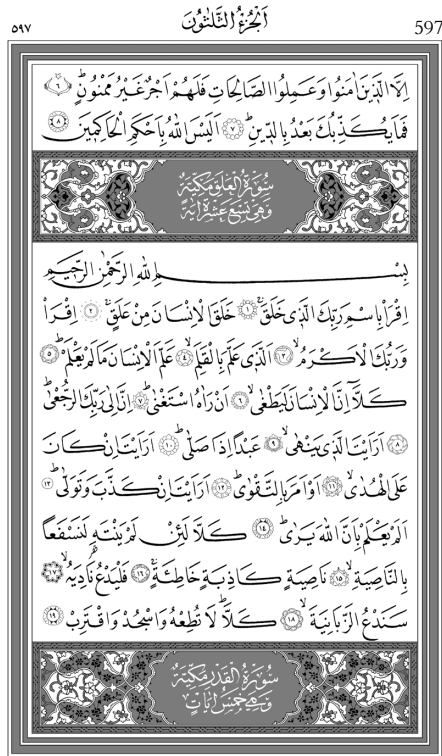 ٥٩٧ اَلْجُزْءُ الثَّلٰثُونَ 597
اِلَّا الَّذٖينَ اٰمَنُوا وَعَمِلُوا الصَّالِحَاتِ فَلَهُمْ اَجْرٌ غَيْرُ مَمْنُونٍؕ ﴿٦﴾
فَمَا يُكَذِّبُكَ بَعْدُ بِالدّٖينِؕ ﴿٧﴾ اَلَيْسَ اللّٰهُ بِاَحْكَمِ الْحَاكِمٖينَ ﴿٨﴾
سُورَةُ الْعَلَقِ مَكِّيَّةٌ
وَهِيَ تِسْعَ عَشْرَةَ اٰيَةً
بِسْمِ اللّٰهِ الرَّحْمٰنِ الرَّحٖيمِ
اِقْرَاْ بِاسْمِ رَبِّكَ الَّذٖى خَلَقَۚ ﴿١﴾ خَلَقَ الْاِنْسَانَ مِنْ عَلَقٍۚ ﴿٢﴾ اِقْرَاْ
وَرَبُّكَ الْاَكْرَمُۙ ﴿٣﴾ اَلَّذٖى عَلَّمَ بِالْقَلَمِۙ ﴿٤﴾ عَلَّمَ الْاِنْسَانَ مَا لَمْ يَعْلَمْؕ ﴿٥﴾
كَلَّٓا اِنَّ الْاِنْسَانَ لَيَطْغٰىۙ ﴿٦﴾ اَنْ رَاٰهُ اسْتَغْنٰىؕ ﴿٧﴾ اِنَّ اِلٰى رَبِّكَ الرُّجْعٰىؕ
﴿٨﴾ اَرَاَيْتَ الَّذٖى يَنْهٰىۙ ﴿٩﴾ عَبْدًا اِذَا صَلّٰىؕ ﴿١٠﴾ اَرَاَيْتَ اِنْ كَانَ
عَلَى الْهُدٰىۙ ﴿١١﴾ اَوْ اَمَرَ بِالتَّقْوٰىؕ ﴿١٢﴾ اَرَاَيْتَ اِنْ كَذَّبَ وَتَوَلّٰىؕ ﴿١٣﴾
اَلَمْ يَعْلَمْ بِاَنَّ اللّٰهَ يَرٰىؕ ﴿١٤﴾ كَلَّا لَئِنْ لَمْ يَنْتَهِ لَنَسْفَعًا
بِالنَّاصِيَةِۙ ﴿١٥﴾ نَاصِيَةٍ كَاذِبَةٍ خَاطِئَةٍۚ ﴿١٦﴾ فَلْيَدْعُ نَادِيَهُۙ ﴿١٧﴾
سَنَدْعُ الزَّبَانِيَةَۙ ﴿١٨﴾ كَلَّاؕ لَا تُطِعْهُ وَاسْجُدْ وَاقْتَرِبْ ﴿١٩﴾
سُورَةُ الْقَدْرِ مَكِّيَّةٌ
وَهِيَ خَمْسُ اٰيَاتٍ